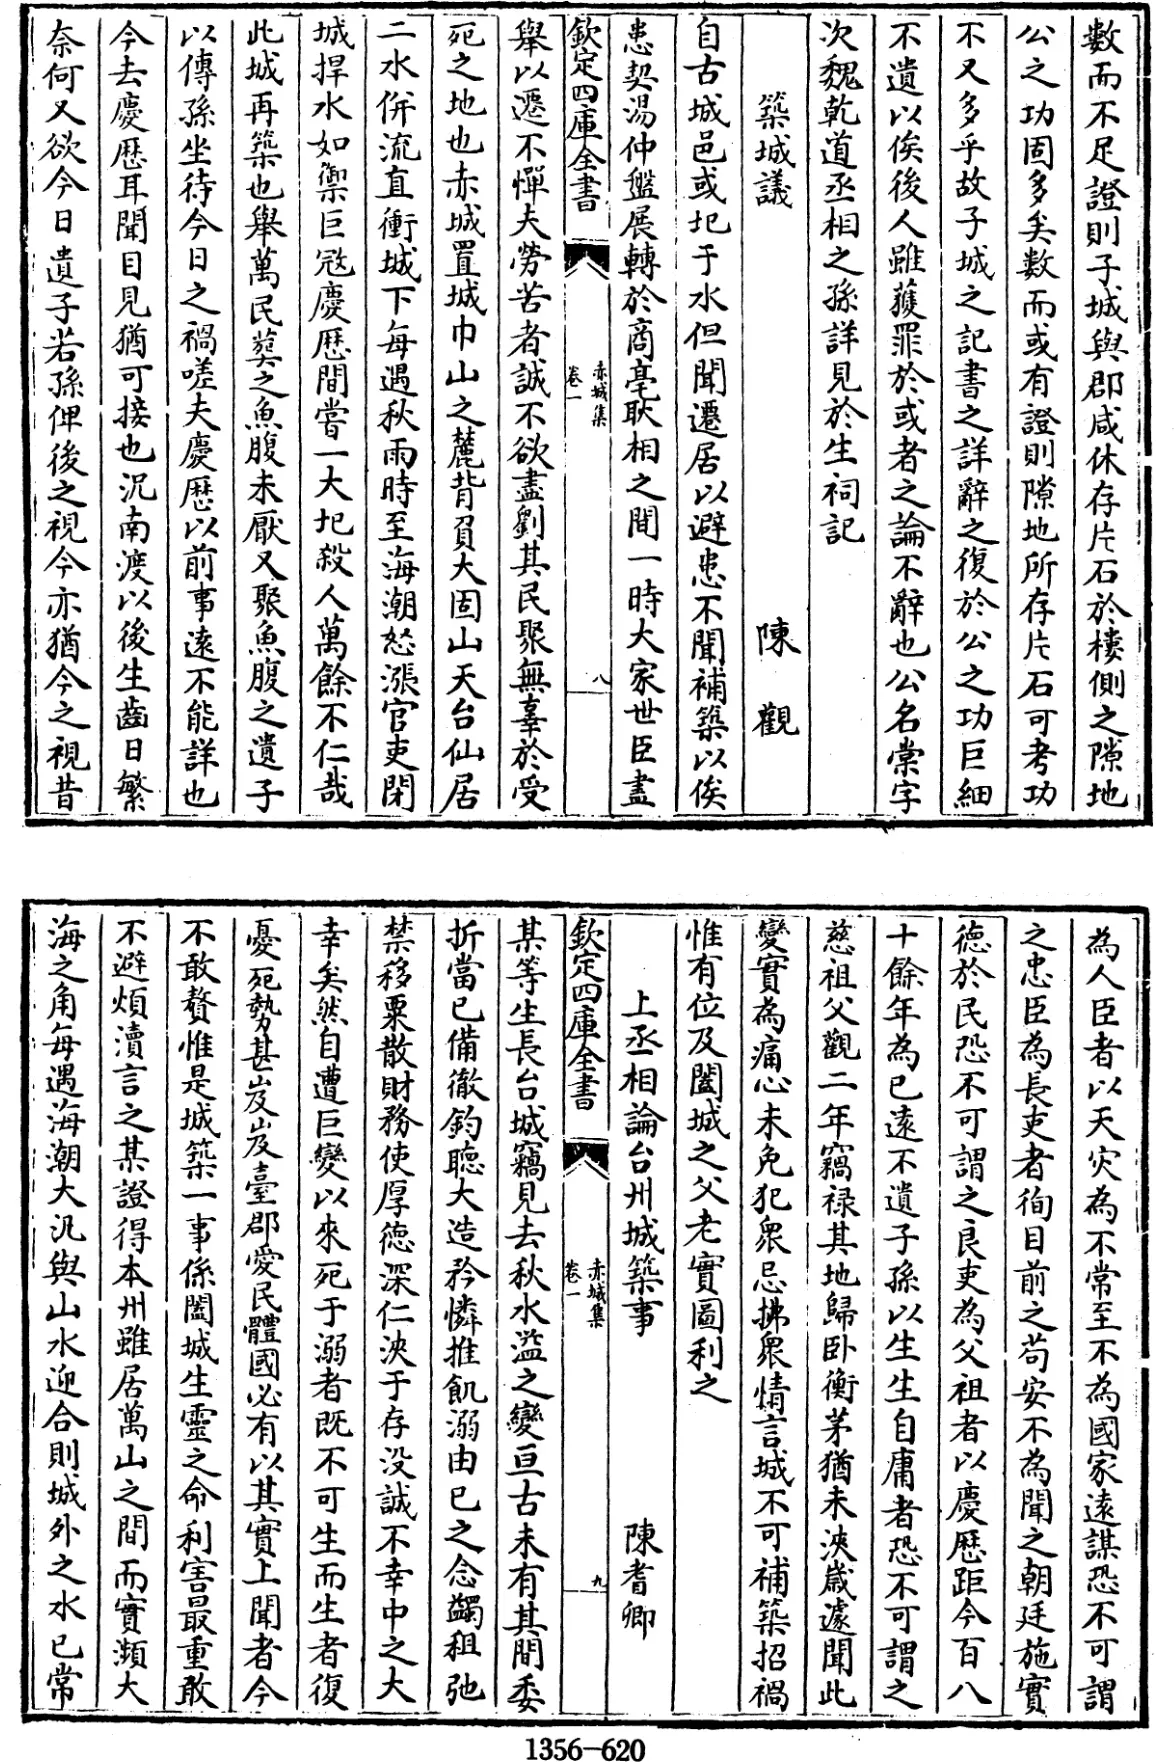 數而不足證則子城與郡咸休存片石於樓側之隙地
公之功固多矣數而或有證則隙地所存片石可考功
不又多乎故子城之記書之詳辭之復於公之功巨細
不遺以俟後人雖獲罪於或者之論不辭也公名棠字
次魏乾道丞相之孫詳見於生祠記
築城議 陳觀
自古城邑或圮于水但聞遷居以避患不聞補築以俟
患契湯仲盤展轉於商亳耿相之間一時大家世臣盡
欽定四庫全書 赤城集 卷一 八
舉以遷不憚夫勞苦者誠不欲盡劉其民聚無辜於受
死之地也赤城置城巾山之麓背負大固山天台仙居
二水併流直衝城下每遇秋雨時至海潮怒漲官吏閉
城捍水如禦巨寇慶厯間嘗一大圮殺人萬餘不仁哉
此城再築也舉萬民葬之魚腹未厭又聚魚腹之遺子
以傳孫坐待今日之禍嗟夫慶厯以前事遠不能詳也
今去慶厯耳聞目見猶可接也況南渡以後生齒日繁
奈何又欲今日遺子若孫俾後之視今亦猶今之視昔
為人臣者以天灾為不常至不為國家遠謀恐不可謂
之忠臣為長吏者徇目前之苟安不為聞之朝廷施實
徳於民恐不可謂之良吏為父祖者以慶厯距今百八
十餘年為已遠不遺子孫以生生自庸者恐不可謂之
慈祖父觀二年竊禄其地歸卧衡茅猶未浹歲遽聞此
變實為痛心未免犯衆忌拂衆情言城不可補築招禍
惟有位及闔城之父老實圖利之
上丞相論台州城築事 陳耆卿
欽定四庫全書 赤城集 卷一 九
某等生長台城竊見去秋水溢之變亘古未有其間委
折當已備徹鈞聽大造矜憐推飢溺由已之念蠲租弛
禁移粟散財務使厚徳深仁浹于存没誠不幸中之大
幸矣然自遭巨變以來死于溺者既不可生而生者復
憂死勢甚岌岌臺郡愛民體國必有以其實上聞者今
不敢贅惟是城築一事係闔城生靈之命利害最重敢
不避煩瀆言之某證得本州雖居萬山之間而實瀕大
海之角每遇海潮大汎與山水迎合則城外之水已常
1356-620